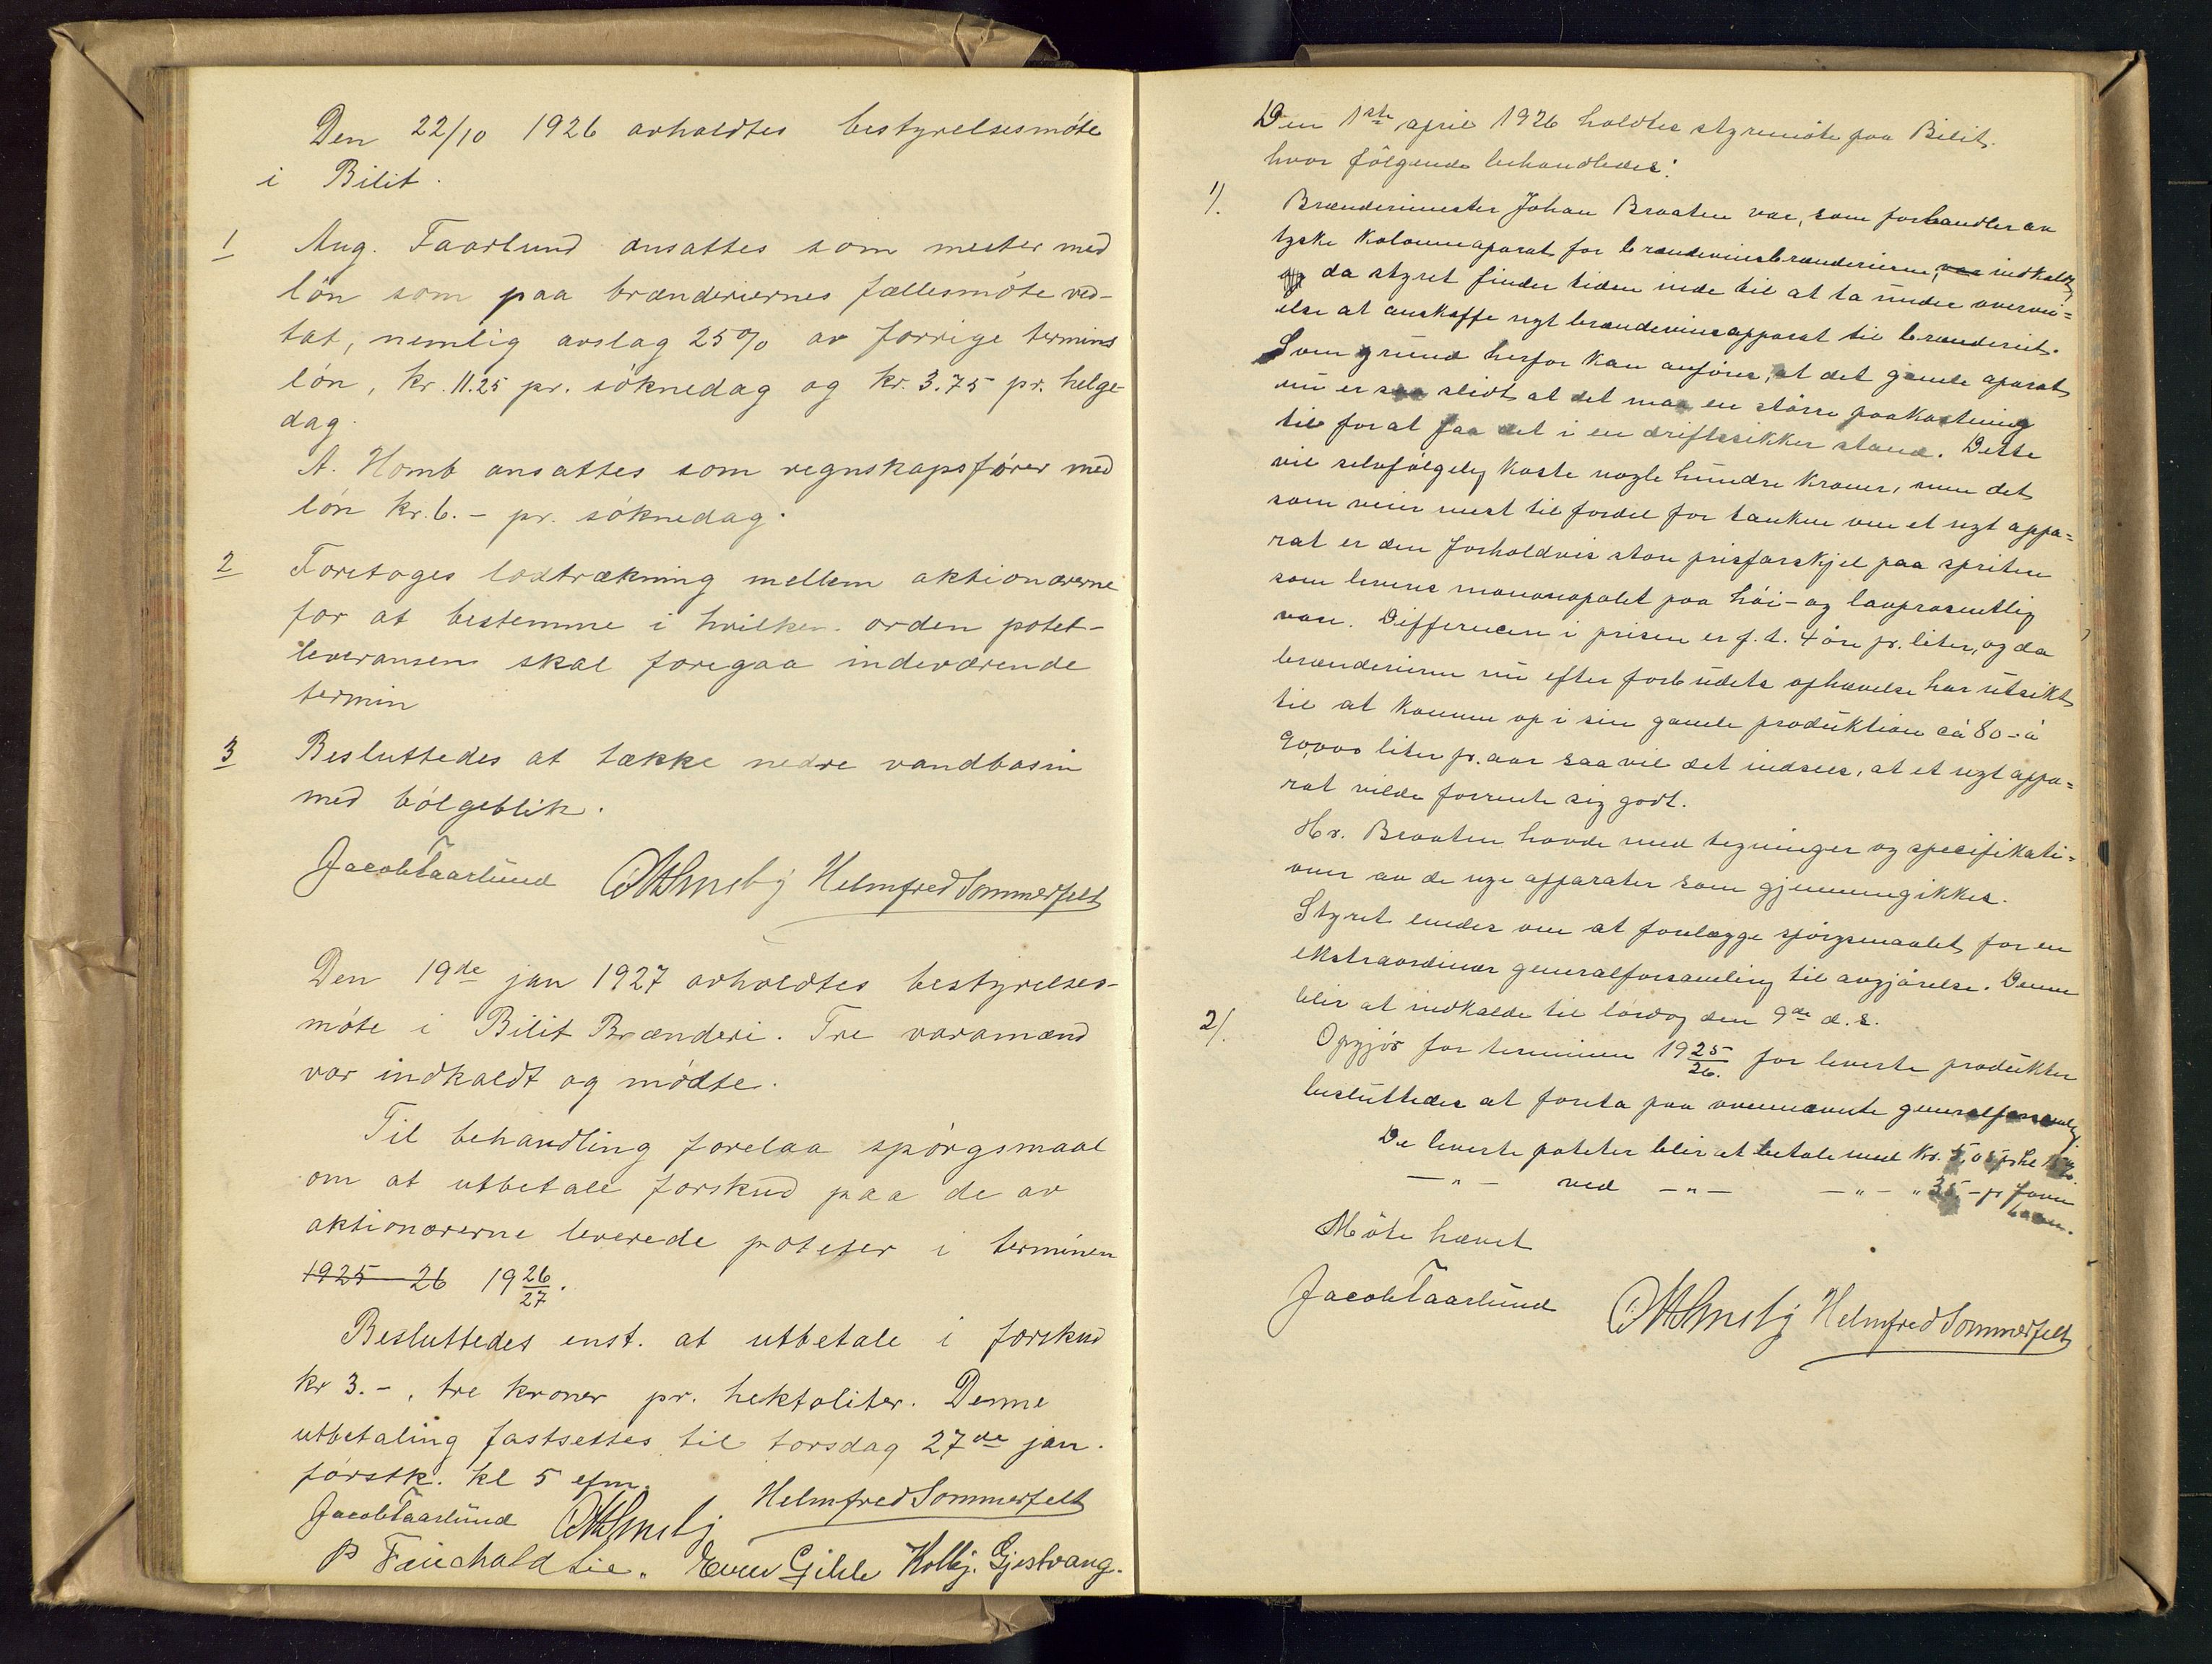 Den 22/10 1926 avholdtes bestyrelsesmöte
i Bilit.
1 Aug. Faarlund ansattes som mester med
lön som paa brænderiernes fællesmöte ved-
tat, nemlig avslag 25% av forrige termins
lön, kr. 11.25 pr. söknedag og kr. 3.75 pr. helge-
dag.
A. Homb ansattes som regnskapsförer med
lön kr. 6.- pr. söknedag.
2 Foretoges lodtrækning mellem aktionærerne
for at bestemme i hvilken orden potet-
leveransen skal foregaa indeværende
termin
3 Besluttedes at tække nedre vandbasin
med bölgeblik.
Jacob Faarlund Helmfred Sommerfelt
Den 19de jan 1927 avholdtes bestyrelses-
möte i Bilit Brænderi. Tre varamænd
var indkaldt og mödte.
Til behandling forelaa spörgsmaal
om at utbetale forskud paa de av
aktionærerne leverede poteter i terminen
1925-26 19 26/27.
Besluttedes enst. at utbetale i forskud
kr 3.-, tre kroner pr. hektoliter. Denne
utbetaling fastsettes til torsdag 27de jan.
förstk. kl 5 efm.
Helmfred Sommerfelt
Jacob Faarlund
Even Gihle Kolbj. Gjestvang.
Den 1ste april 1926 holdtes styremöte paa Bilit.
hvor fölgende behandledes:
1). Brænderimester Johan Braaten var, som forhandler av
tyske kolonneaparat for brændevinsbrænderierne, var indkaldt,
da styret finder tiden inde til at ta under overvei=
else at anskaffe nyt brændevinsapparat til brænderiet.
Som grund herfor kan anföres, at det gamle aparat
nu er saa slidt at det maa en större paakostning
til for at faa det i en driftssikker stand. Dette
vil selvfölgelig koste nogle hundre kroner, men det
som veier mest til fordel for tanken om et nyt appa=
rat er den forholdvis store prisforskjel paa spriten
som leveres monopolet paa höi- og lavprosentlig
vare. Differencen i prisen er f. t. 4 öre pr. liter, og da
brænderierne nu efter forbudets ophævelse har utsikt
til at komme op i sin gamle produktion ca 80-à
90,000 liter pr. aar saa vil det indsees, at et nyt appa=
rat vilde forrente sig godt.
Hr. Braaten havde med tegninger og spesifikati=
oner av de nye apparater som gjennemgikkes.
Styret enedes om at forelægge spörgsmaalet for en
ekstraordinær generalforsamling til avgjörelse. Denne
blir at indkalde til lördag den 9de d. s.
2). Opgjör for terminen 19 25/26. for leverte produkter
besluttedes at foreta paa ovennævnte generalforsamling.
De leverte poteter blir at betale med Kr. 5,
—"— ved —"— —"— " 35.- pr favn
Möte hævet
Jacob Faarlund Helmfred Sommerfelt